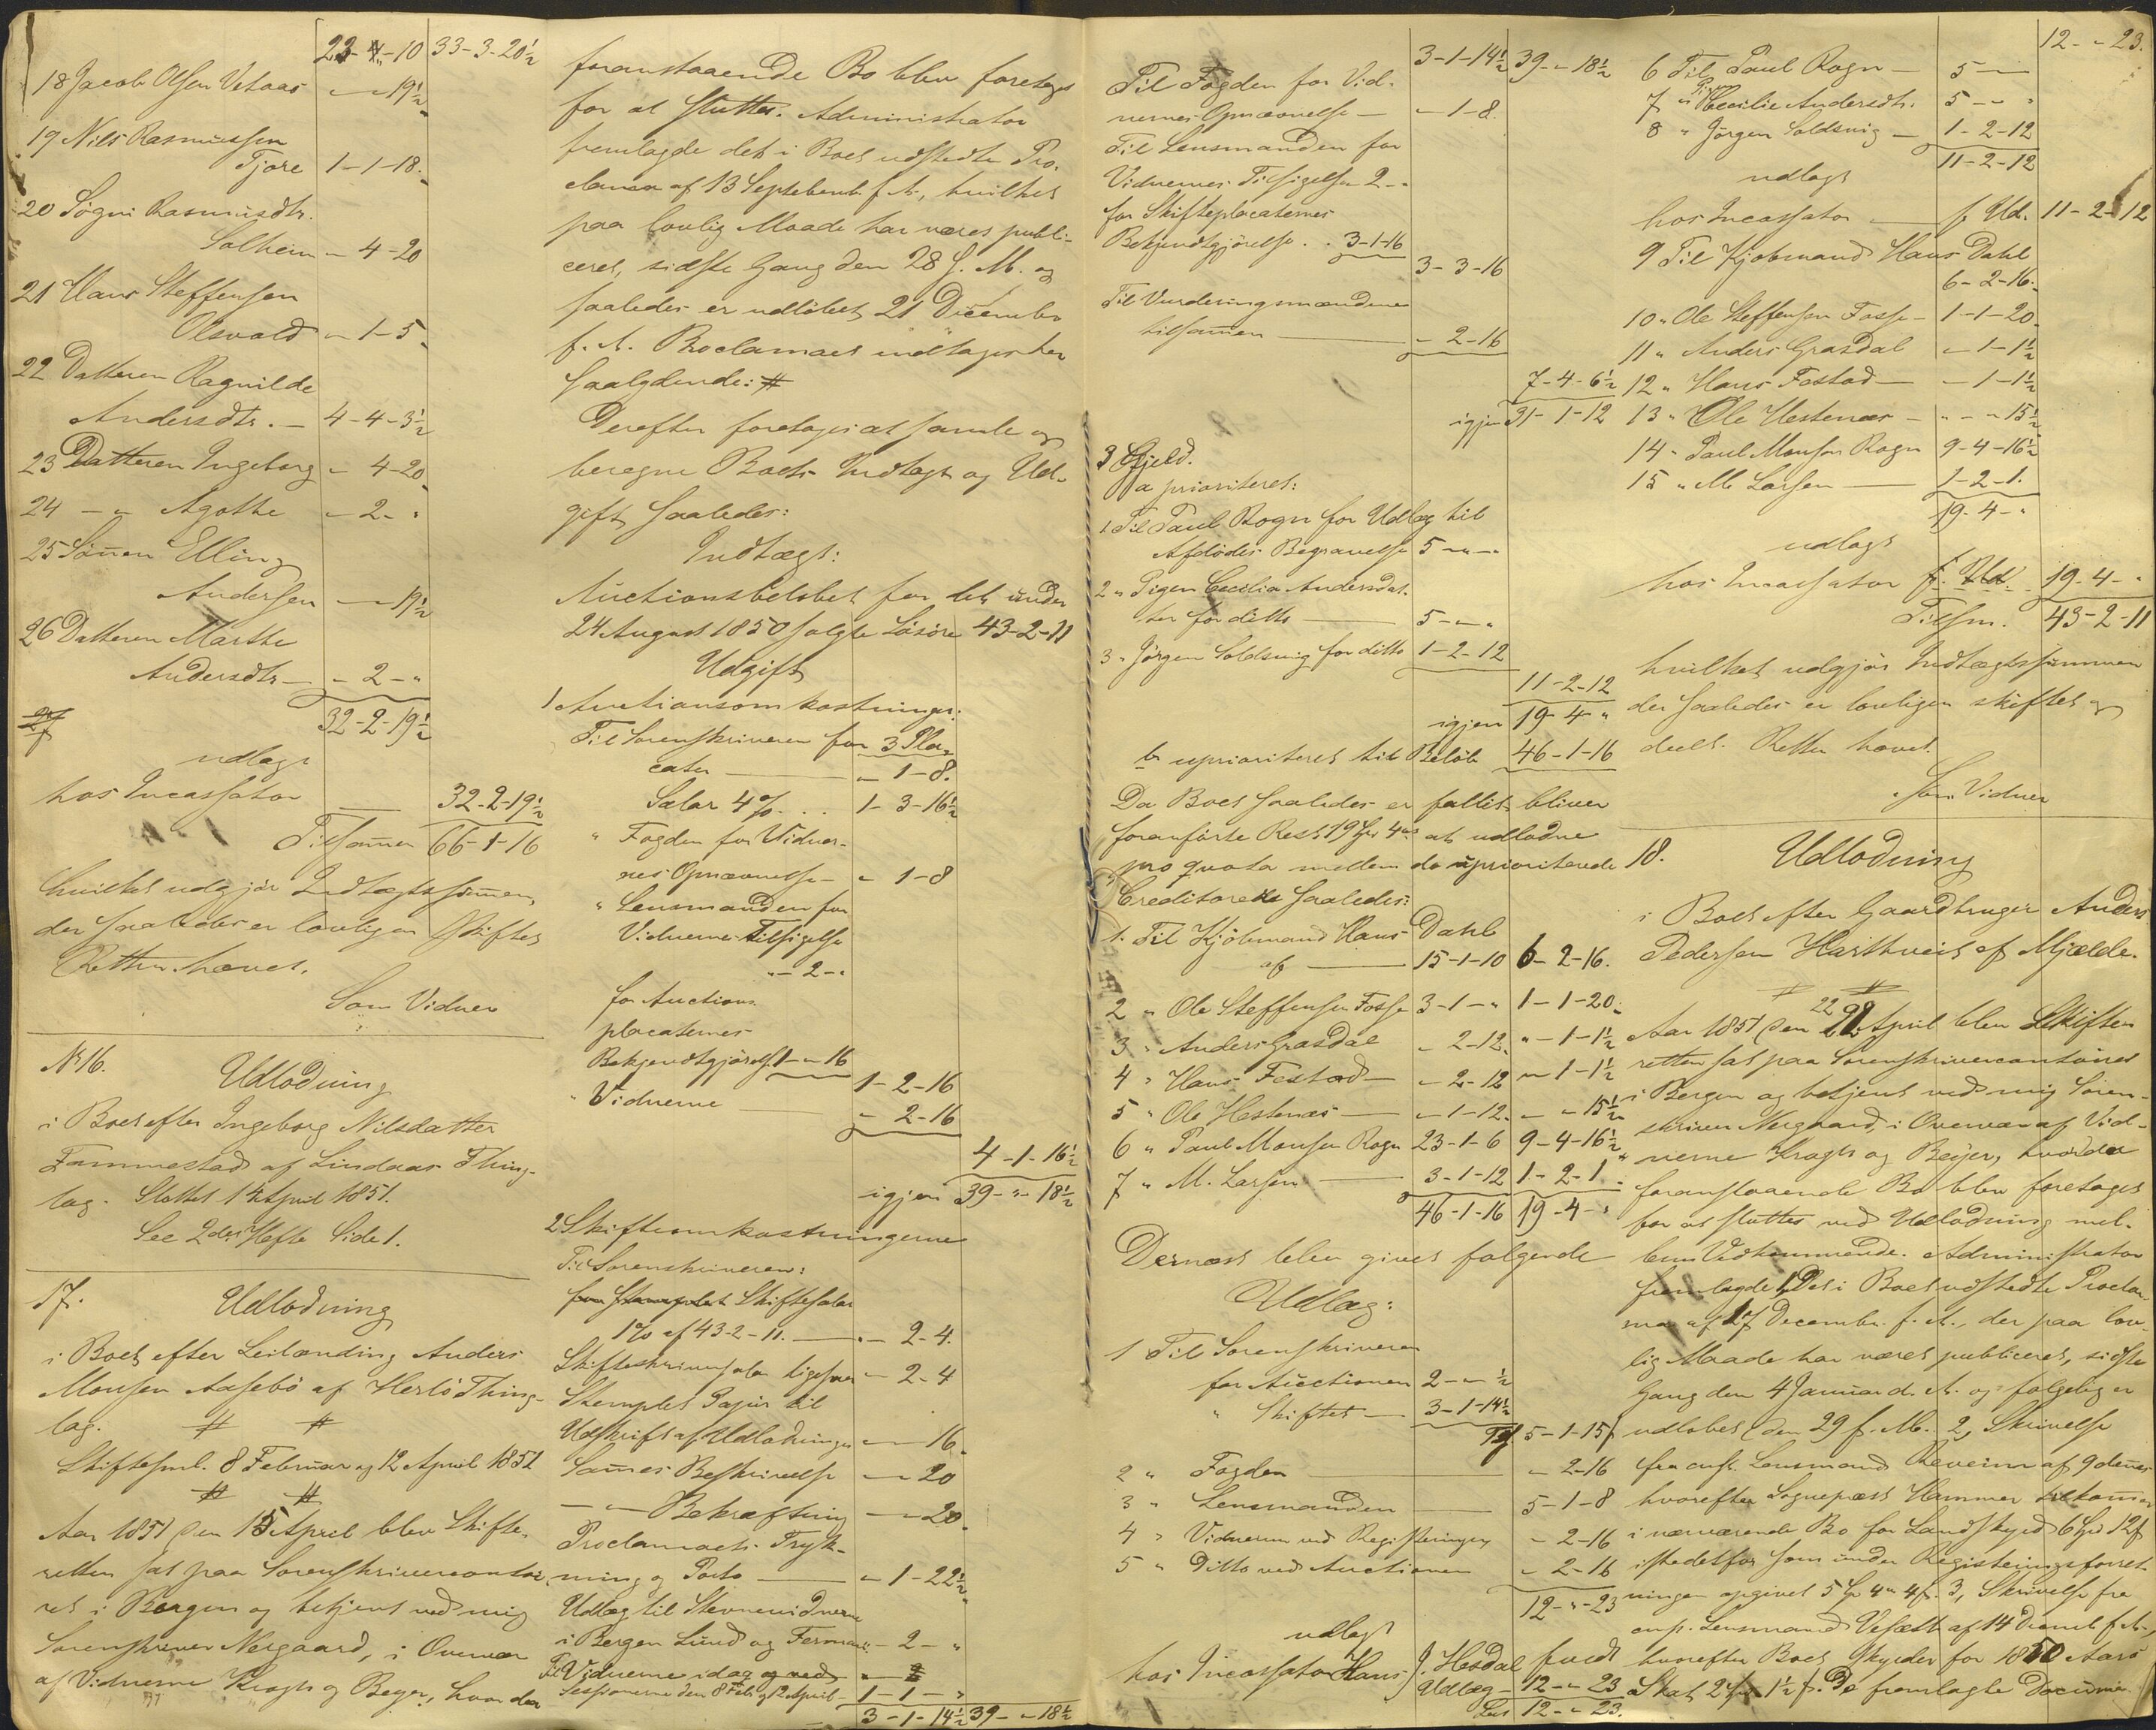 23-4-10 33-3-20½
18 Jacob Olsen Vetaas - - 19½
19 Nils Rasmussen
Tjore 1-1-18
20 Søgni Rasmusdtr.
Solheim - 4-20
21 Hans Steffensen
Olsvold - 1-5
22 Datteren Ragnilde
Andersdtr. - 4-4-3½
23 Datteren Ingeborg - 4-20
24 - " Agothe - 2-"
25 Sønnen Elling
Andersen - - 19½
26 Datteren Marthe
Andersdtr - - 2-"
32-2-19½
udlagt
hos Incassator 32-2-19½
Tilsammen 66-1-16
hvilket udgjør Indtægtssummen,
der saaledes er lovligen skiftet
Retten hævet.
Som Vidner
No 16.
Udlodning
i Boet efter Ingeborg Nilsdatter
Fammestad af Lindaas Thing-
lag. Sluttet 14 April 1851.
See 2det Hefte Side 1.
17.
Udlodning
i Boet efter Leilænding Anders
Monsen Aasebø af Herlø Thing-
lag.
Skiftesml. 8 Februar og 12 April 1851
Aar 1851 den 15 April blev Skifte-
retten sat paa Sorenskrivercontoi-
ret i Bergen og betjent ved mig
Sorenskriver Nergaard, i Overvær
af Vidnerne Kragh og Beyer, hvor da
foranstaaende Bo blev foretaget
for at sluttes. Administrator
fremlagde det i Boet udstedte Pro-
clama af 13 Septembr. f. A., hvilket
paa lovlig Maade har været publi-
ceret, sidste Gang den 28 s. M. og
saaledes er udløbet 21 December
f. A. Proclamaet indtages her
saalydende: #
Derefter foretoges at samle og
beregne Boets Indtægt og Ud-
gift saaledes:
Indtægt:
Auctionsbeløbet for det under
24 August 1850 solgte Løsøre 43-2-11
Udgift
1 Auctionsomkostninger:
Til Sorenskriveren for 3 Pla-
cater - 1-8.
Salar 4% . . . 1-3-16½
" Fogden for Vidner-
nes Opnævnelse - - 1-8
" Lensmanden for
Vidnernes Tilsigelse
" - 2-"
for Auctions
placaternes
Bekjendtgjørelse 1-"-16
1-2-16
" Vidnerne - 2-16
4-1-16½
igjen 39-"-18½
2 Skifteomkostningerne
Til Sorenskriveren:
for Stemplet Skiftesalar
1% af 43-2-11. - 2-4.
Skifteskriversalar ligesaa - 2-4
Stemplet Papir til
Udskrift af Udlodningen - - 16.
Sammes Beskrivelse - - 20
- " - Bekræftning - - 20.
Proclamaets Tryk-
ning og Porto - 1-22½
Udlæg til Stevnevidnerne
i Bergen Lund og - 2-"
Til Vidnerne idag og ved
Sessionerne den 8 Feb. og 12 April - 1-1-"
3-1-14½ 39-"-18½
3-1-14½ 39-"-18½
Til Fogden for Vid-
nernes Opnævnelse - - 1-8.
Til Lensmanden for
Vidnernes Tilsigelse 2-"
for Skifteplacaternes
Bekjendtgjørelse . . 3-1-16
3-3-16
Til Vurderingsmændene
tilsammen - 2-16
7-4-6½
igjen 31-1-12
3 Gjeld.
a prioriteret:
1 Til Paul Rogn for Udlæg til
Afdødes Begravelse 5-"-"
2 " Pigen Cecilia Andersdat-
ter for ditto 5-"-"
3 " Jørgen Soldsvig for ditto 1-2-12
11-2-12
igjen 19-4-"
b uprioriteret til Beløb 46-1-16
Da Boet saaledes er fallit bliver
foranførte Rest 19 Spd 4 ort at udlodne
pro quota mellem de uprioriterede
Creditorer saaledes:
1. Til Kjøbmand Hans Dahl
af 15-1-10 6-2-16.
2 " Ole Steffensen Fosse 3-1-" 1-1-20.
3 " Anders Grasdal - 2-12. " - 1-1½
4 " Hans Fostad - - 2-12 " - 1-1½
5 " Ole Hestenæs - - 1-12. - " 15½
6 " Paul Monsen Rogn 23-1-6 9-4-16½
7 " M. Larsen 3-1-12 1-2-1.
46-1-16 19-4-"
Dernæst blev givet følgende
Udlæg:
1 Til Sorenskriveren
for Auctionen 2-"-½
" Skiftet 3-1-14½
5-1-15
2 " Fogden - 2-16
3 " Lensmanden 5-1-8
4 " Vidnerne ved Registreringen - 2-16
5 " Ditto ved Auctionen - 2-16
12-"-23
udlagt
hos Incassator Hans J. Hosdal fuldt
Udlæg - 12-"-23
Lat. 12-"-23.
12-"-23.
6 Til Paul Rogn - 5-"
7 " Pigen Cecilie Andersdtr. 5-"-"
8 " Jørgen Soldsvig - 1-2-12
11-2-12
udlagt
hos Incassator - f. Ud. 11-2-12
9 Til Kjøbmand Hans Dahl
6-2-16.
10 " Ole Steffensen Fosse - 1-1-20.
11 " Anders Grasdal - 1-1½
12 " Hans Fostad - - 1-1½
13 " Ole Hestenæs - " - - 15½
14 " Paul Monsen Rogn 9-4-16½
15 " M. Larsen - 1-2-1.
19-4-"
udlagt
hos Incassator f. Ud. 19-4-"
Tilsm. 43-2-11
hvilket udgjør Indtægtssummen
der saaledes er lovligen skiftet og
deelt. Retten hævet.
Som Vidner
18.
Udlodning
i Boet efter Gaardbruger Anders
Pedersen Harthveit af Mjelde.
Aar 1851 den 22 April blev Skifte
retten sat paa Sorenskrivercontoiret
i Bergen og betjent ved mig Soren-
skriver Nergaard, i Overvær af Vid-
nerne Kragh og Beyer, hvor da
foranstaaende Bo blev foretaget
for at sluttes ved Udlodning mel-
lem Vedkommende. Administrator
fremlagde 1, Det i Boet udstedte Procla-
ma af 17 Decembr. f. A., der paa lov-
lig Maade har været publiceret, sidste
Gang den 4 Januar d. A. og følgelig er
udløbet den 29 f. M. 2, Skrivelse
fra const. Lensmand Reveim af 9 dennes
hvorefter Sognepræst Hammer tilkommer
i nærværende Bo for Landskyld 6 Spd 12 s
istedetfor som under Registreringsforret-
ningen opgivet 5 Spd 4 ort 4 s. 3, Skrivelse fra
const. Lensmand af 14 Decmb. f. A.,
hvorefter Boet skylder for 1850 Aars
Skat 2 Spd 1½ s. De fremlagte Documen-